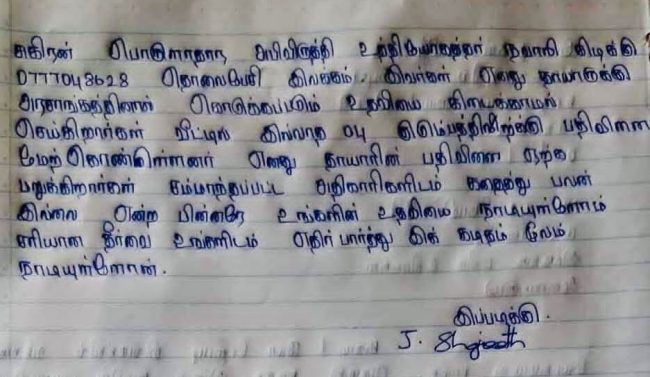 சுகிரன் பொருளாதார அபிவிருத்தி உத்தியோகத்தர் நவாலி கிழக்கு
0777048628 தொலைபேசி இலக்கம். இவர்கள் எனது தாயாருக்கு
அரசாங்கத்தினால் கொடுக்கப்படும் உதவியை கிடைக்காமல்
செய்கிறார்கள் வீட்டில் இல்லாத 04 பதிவினை
மேற் கொண்டுள்ளனர் எனது தாயாரின் பதிவினை ஏற்க
மறுக்கிறார்கள் சம்மந்தப்பட்ட அதிகாரிகளிடம் கதைத்து பலன்
இல்லை என்ற பின்னரே உங்களின் உதவியை நாடியுள்ளோம்
சரியான தீர்வை உங்களிடம் எதிர் பார்த்து இக் கடிதம்
நாடியுள்ளோன்.
இப்படிக்கு.
J.